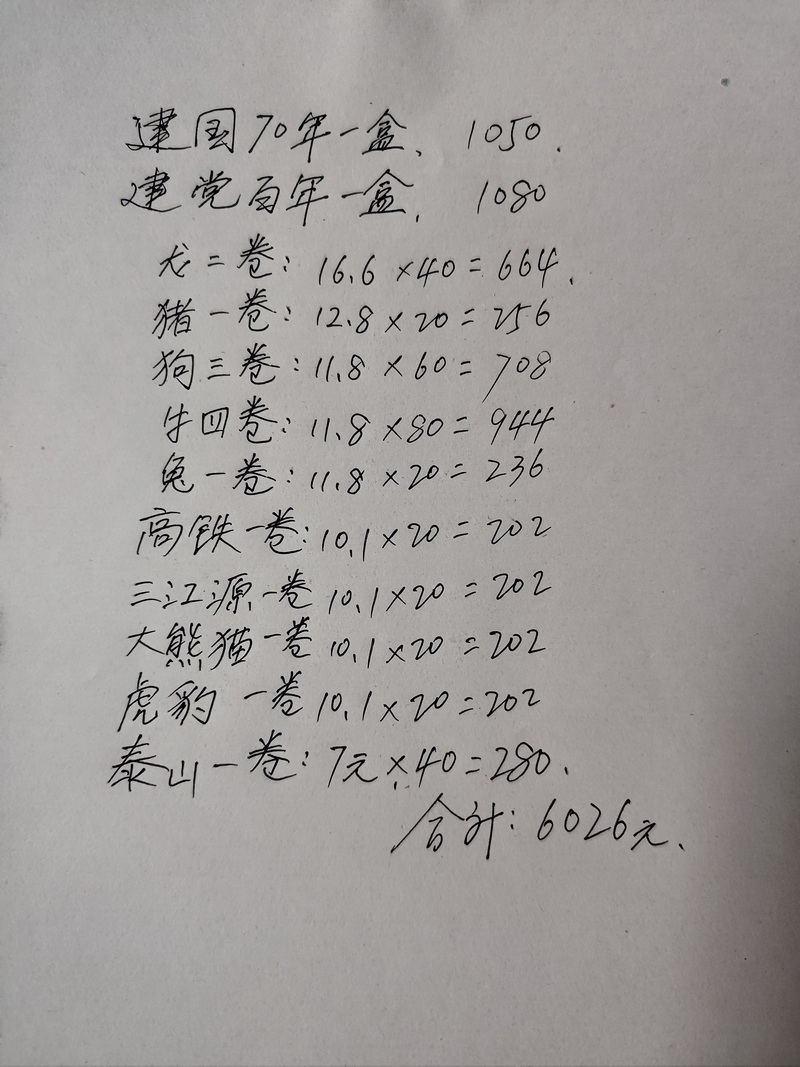 建国70年一盒、1050.
建党百年一盒、1080
龙二卷：16.6×40=664.
猪一卷：12.8×20=256
狗三卷：11.8×60=708
牛四卷：11.8×80=944
兔一卷：11.8×20=236
高铁一卷：10.1×20=202
三江源一卷 10.1×20=202
大熊猫一卷 10.1×20=202
虎豹 一卷 10.1×20=202
泰山一卷：7元×40=280.
合计：6026元、